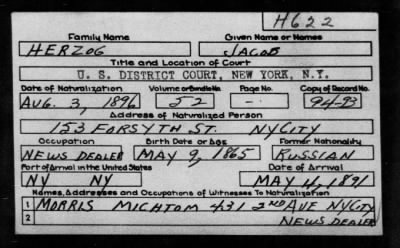 H622
Family Name Given Name or Names
HERZOG JACOB
Title and Location of Court
U. S. DISTRICT COURT, NEW YORK, N.Y.
Date of Naturalization Volume or Bundle No. Page No. Copy of Record No.
AUG. 3, 1896 52 - 94-93
Address of Naturalized Person
153 FORSYTH ST. NYCITY
Occupation Birth Date or Age Former Nationality
NEWS DEALER MAY 9, 1865 RUSSIAN
Port of Arrival in the United States Date of Arrival
NY NY MAY 11, 1891
Names, Addresses and Occupations of Witnesses To Naturalization
1 MORRIS MICHTOM 431 2ND AVE NYCITY
2 NEWS DEALER